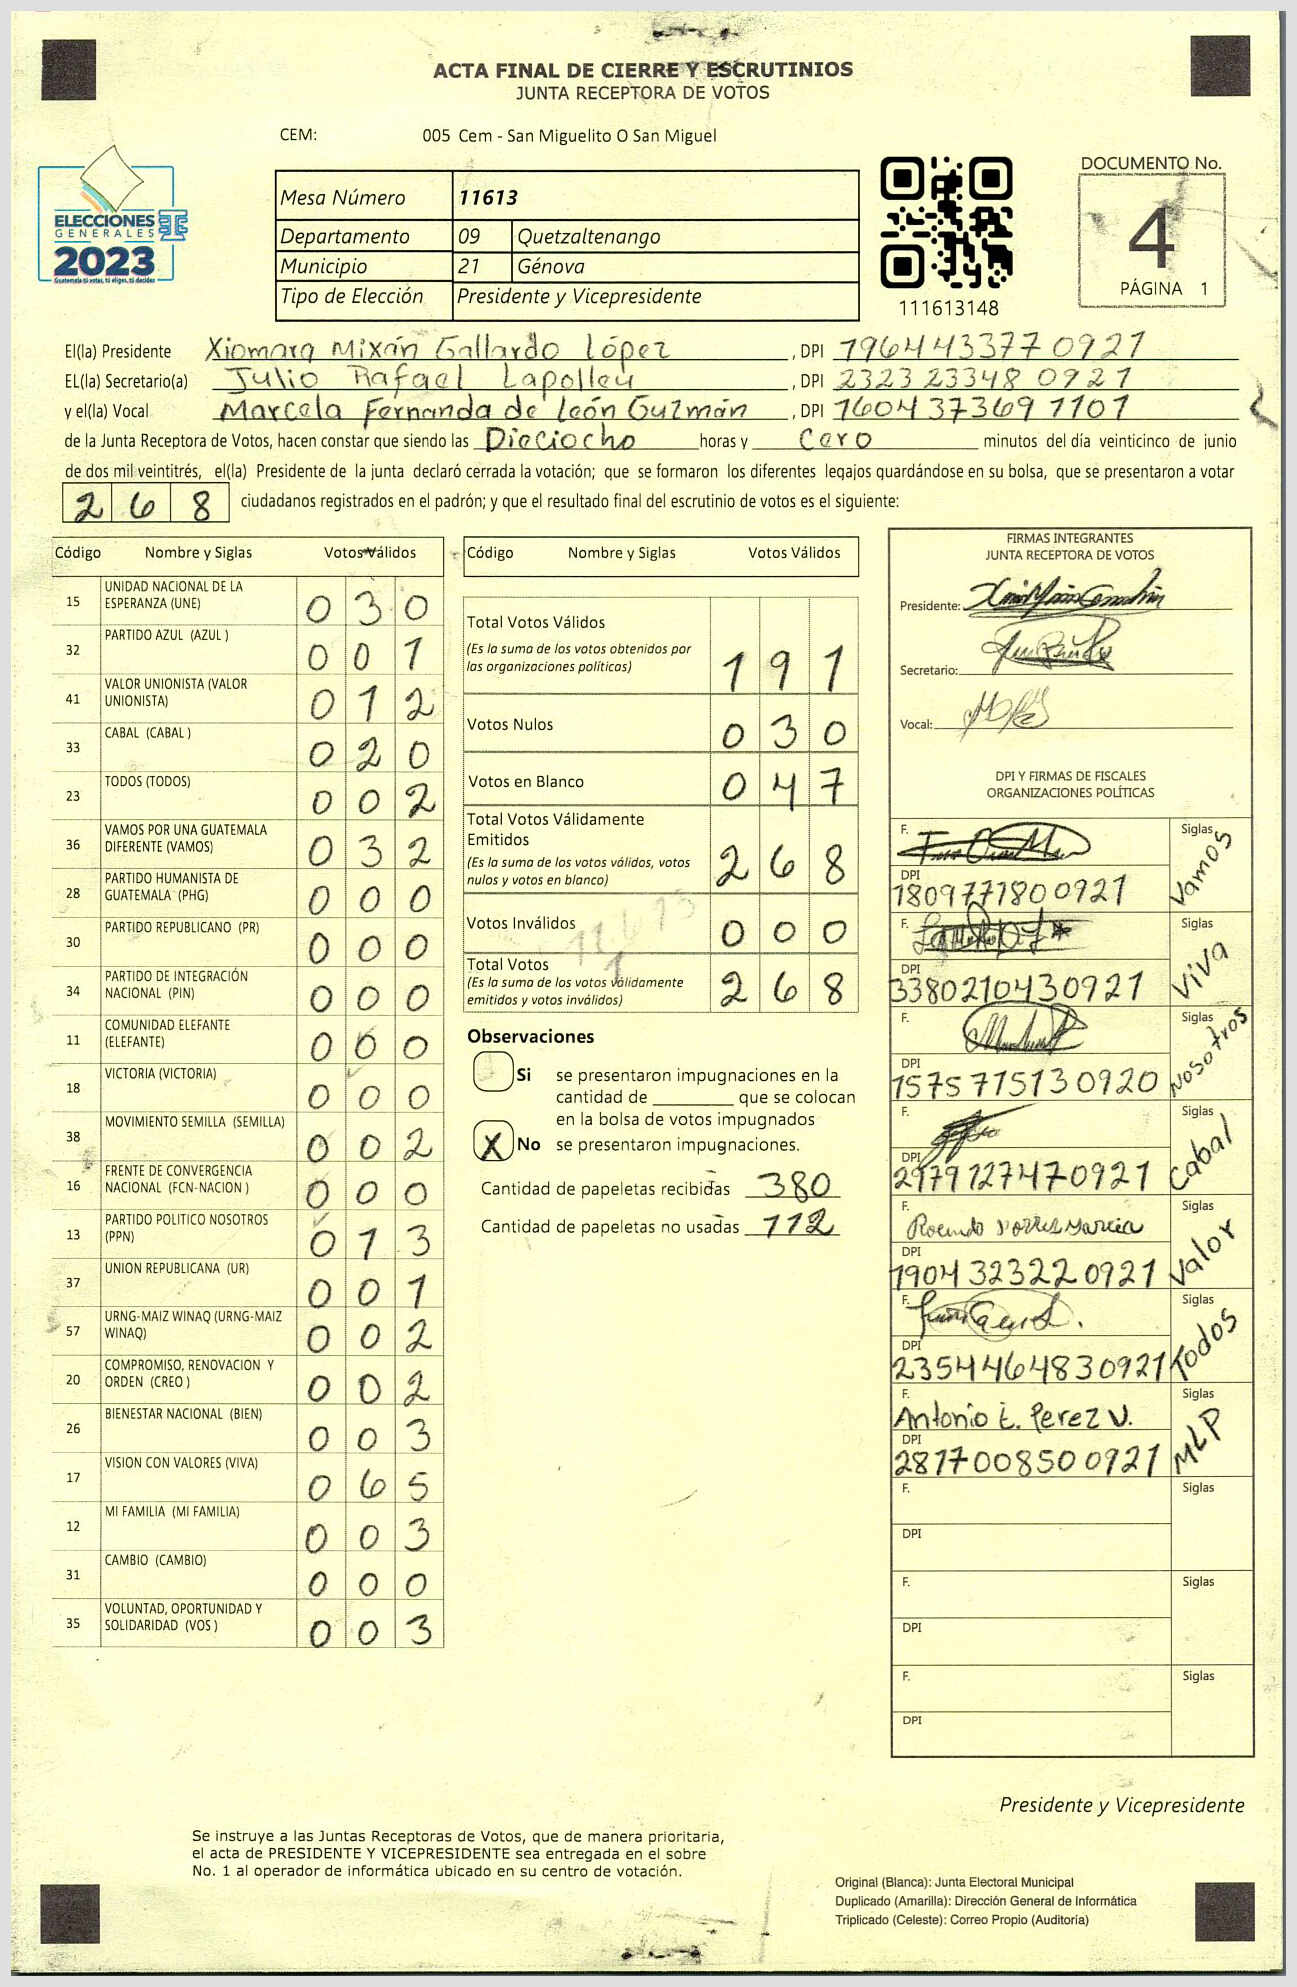 ACTA FINAL DE CIERRE Y ESCRUTINIOS
JUNTA RECEPTORA DE VOTOS
CEM: 005 Cem - San Miguelito O San Miguel
ELECCIONES
GENERALES
2023
Guatemala tú votas, tú eliges, tú decides
Mesa Número 11613
Departamento 09 Quetzaltenango
Municipio 21 Génova
Tipo de Elección Presidente y Vicepresidente
111613148
DOCUMENTO No.
4
PÁGINA 1
El(la) Presidente Xiomara Mixán Gallardo López, DPI 1964433770921
EL(la) Secretario(a) Julio Rafael Lapolleu, DPI 2323233480921
y el(la) Vocal Marcela Fernanda de León Guzmán, DPI 1604373691101
de la Junta Receptora de Votos, hacen constar que siendo las Dieciocho horas y Cero minutos del día veinticinco de junio
de dos mil veintitrés, el(la) Presidente de la junta declaró cerrada la votación; que se formaron los diferentes legajos quardándose en su bolsa, que se presentaron a votar
268 ciudadanos registrados en el padrón; y que el resultado final del escrutinio de votos es el siguiente:
Código Nombre y Siglas Votos Válidos
15 UNIDAD NACIONAL DE LA
ESPERANZA (UNE) 030
32 PARTIDO AZUL (AZUL ) 001
41 VALOR UNIONISTA (VALOR
UNIONISTA) 012
33 CABAL (CABAL ) 020
23 TODOS (TODOS) 002
36 VAMOS POR UNA GUATEMALA
DIFERENTE (VAMOS) 032
28 PARTIDO HUMANISTA DE
GUATEMALA (PHG) 000
30 PARTIDO REPUBLICANO (PR) 000
34 PARTIDO DE INTEGRACIÓN
NACIONAL (PIN) 000
11 COMUNIDAD ELEFANTE
(ELEFANTE) 000
18 VICTORIA (VICTORIA) 000
38 MOVIMIENTO SEMILLA (SEMILLA) 002
16 FRENTE DE CONVERGENCIA
NACIONAL (FCN-NACION ) 000
13 PARTIDO POLITICO NOSOTROS
(PPN) 013
37 UNION REPUBLICANA (UR) 001
57 URNG-MAIZ WINAQ (URNG-MAIZ
WINAQ) 002
20 COMPROMISO, RENOVACION Y
ORDEN (CREO ) 002
26 BIENESTAR NACIONAL (BIEN) 003
17 VISION CON VALORES (VIVA) 065
12 MI FAMILIA (MI FAMILIA) 003
31 CAMBIO (CAMBIO) 000
35 VOLUNTAD, OPORTUNIDAD Y
SOLIDARIDAD (VOS ) 003
Código Nombre y Siglas Votos Válidos
Total Votos Válidos
(Es la suma de los votos obtenidos por
las organizaciones políticas) 191
Votos Nulos 030
Votos en Blanco 047
Total Votos Válidamente
Emitidos
(Es la suma de los votos válidos, votos
nulos y votos en blanco) 268
Votos Inválidos 000
Total Votos
(Es la suma de los votos válidamente
emitidos y votos inválidos) 268
Observaciones
Si se presentaron impugnaciones en la
cantidad de ________ que se colocan
en la bolsa de votos impugnados
X No se presentaron impugnaciones.
Cantidad de papeletas recibidas 380
Cantidad de papeletas no usadas 112
FIRMAS INTEGRANTES
JUNTA RECEPTORA DE VOTOS
Presidente:
Secretario:
Vocal:
DPI Y FIRMAS DE FISCALES
ORGANIZACIONES POLÍTICAS
F. Siglas Vamos
DPI 1809771800921
F. Siglas Viva
DPI 3380210430921
F. Siglas Nosotros
DPI 1575715130920
F. Siglas Cabal
DPI 2979127470921
F. Siglas Valor
DPI 1904323220921
F. Siglas Todos
DPI 2354464830921
F. Antonio E. Perez V. Siglas MLP
DPI 2817008500921
F. Siglas
DPI
F. Siglas
DPI
F. Siglas
DPI
Presidente y Vicepresidente
Se instruye a las Juntas Receptoras de Votos, que de manera prioritaria,
el acta de PRESIDENTE Y VICEPRESIDENTE sea entregada en el sobre
No. 1 al operador de informática ubicado en su centro de votación.
Original (Blanca): Junta Electoral Municipal
Duplicado (Amarilla): Dirección General de Informática
Triplicado (Celeste): Correo Propio (Auditoría)